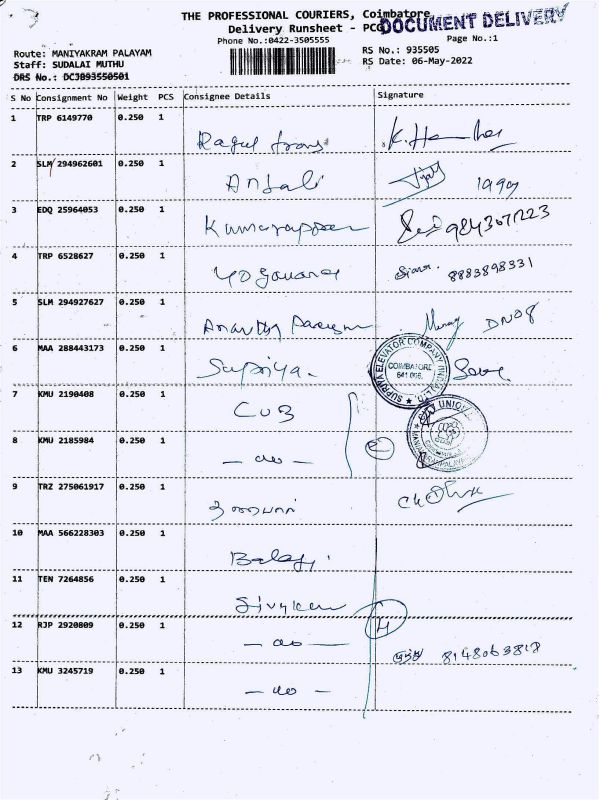 THE PROFESSIONAL COURIERS, Coimbatore
DOCUMENT DELIVERY
Delivery Runsheet - PCC
Phone No.:0422-3505555
Page No.:1
Route: MANIYAKRAM PALAYAM
RS No.: 935505
Staff: SUDALAI MUTHU
RS Date: 06-May-2022
DRS No.: DCJB93550501
S No Consignment No Weight PCS Consignee Details Signature
1 TRP 6149770 0.250 1
2 SLM 294962601 0.250 1 Anjali 1999
3 EDQ 25964053 0.250 1 Kumarappan
4 TRP 6528627 0.250 1 8883898331
5 SLM 294927627 0.250 1 DNO8
6 MAA 288443173 0.250 1 Supriya.
SUPRIYA ELEVATOR COMPANY COIMBATORE
7 KMU 2190408 0.250 1 CUB
UNION
8 KMU 2185984 0.250 1 — do — 2
9 TRZ 275061917 0.250 1
10 MAA 566228303 0.250 1 Balaji
11 TEN 7264856 0.250 1
12 RJP 2920809 0.250 1 — do — 4 8148063818
13 KMU 3245719 0.250 1 — do —